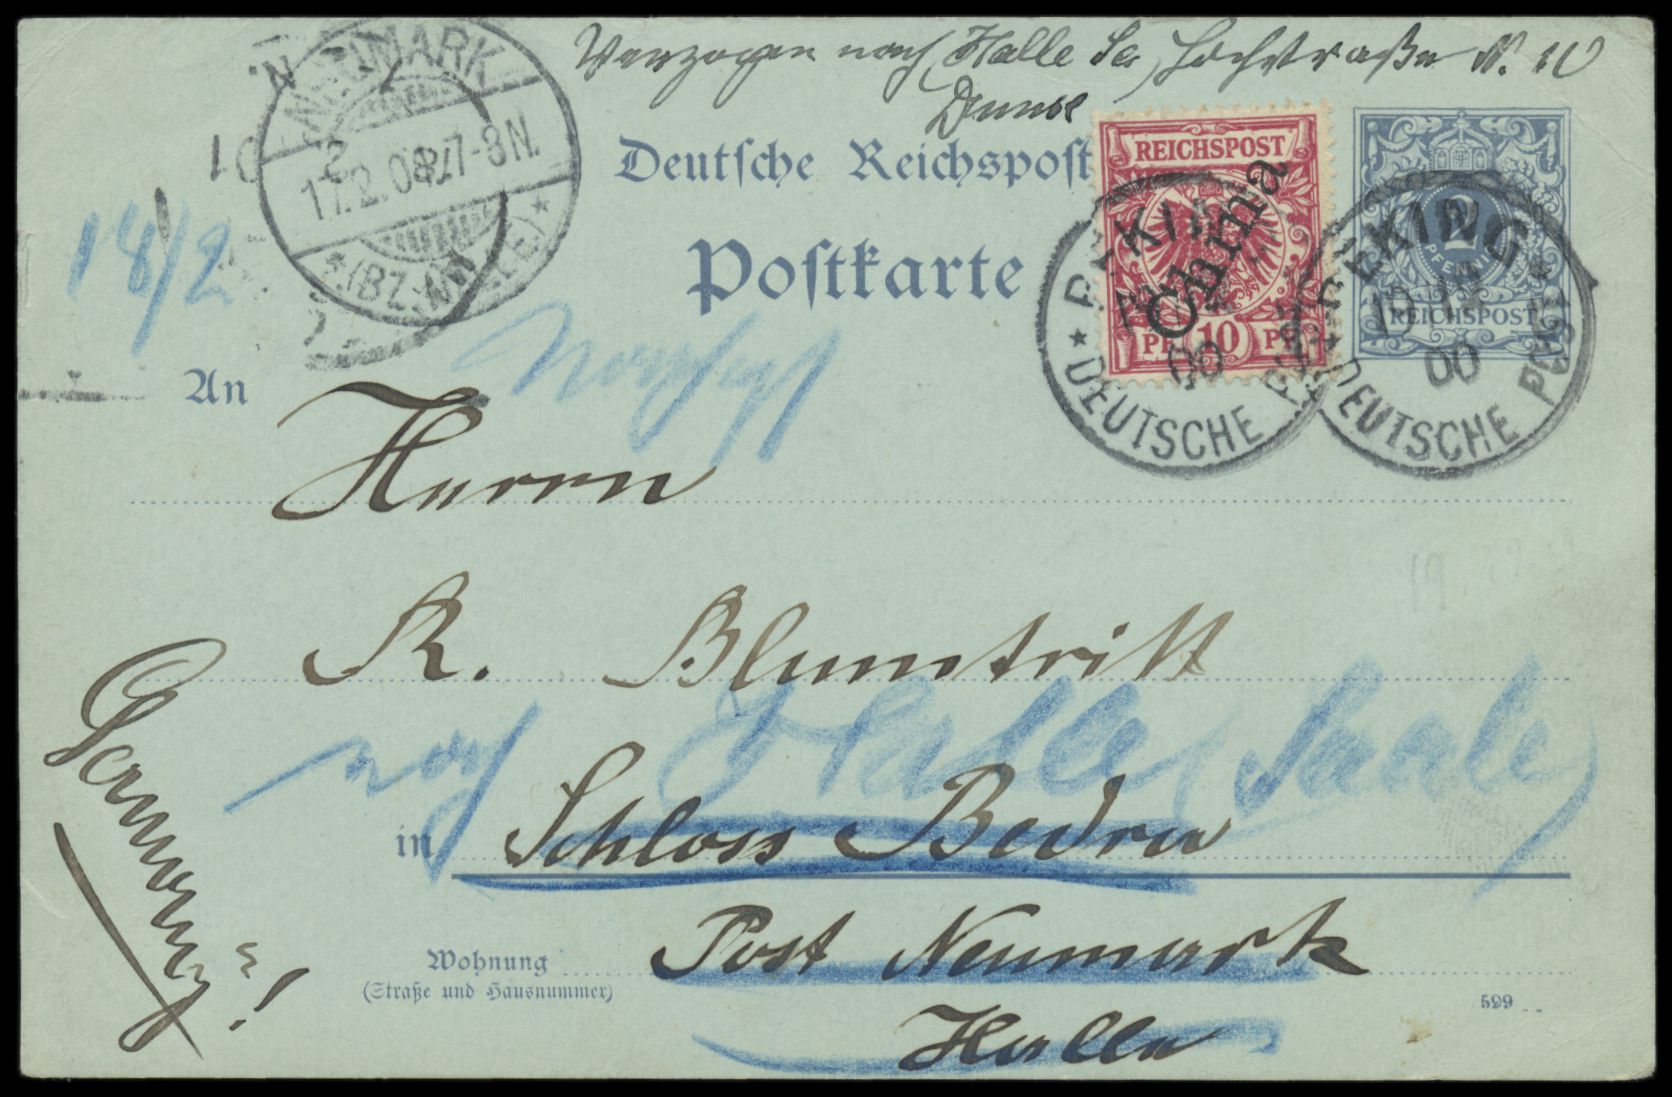 Verzogen nach Halle Sa, Hochstraße N. 10
Deutsche Reichspost
Postkarte
REICHSPOST
China
10
2
PFENNIG
REICHSPOST
PEKING
00
DEUTSCHE POST
PEKING
00
DEUTSCHE POST
NEUMARK
17.2.
7-8N.
(BZ.
18/2
An
Herrn
R. Blumtritt
nach Halle (Saale)
in Schloss Bedra
Wohnung Post Neumark
(Straße und Hausnummer)
599
Halle
Germany!